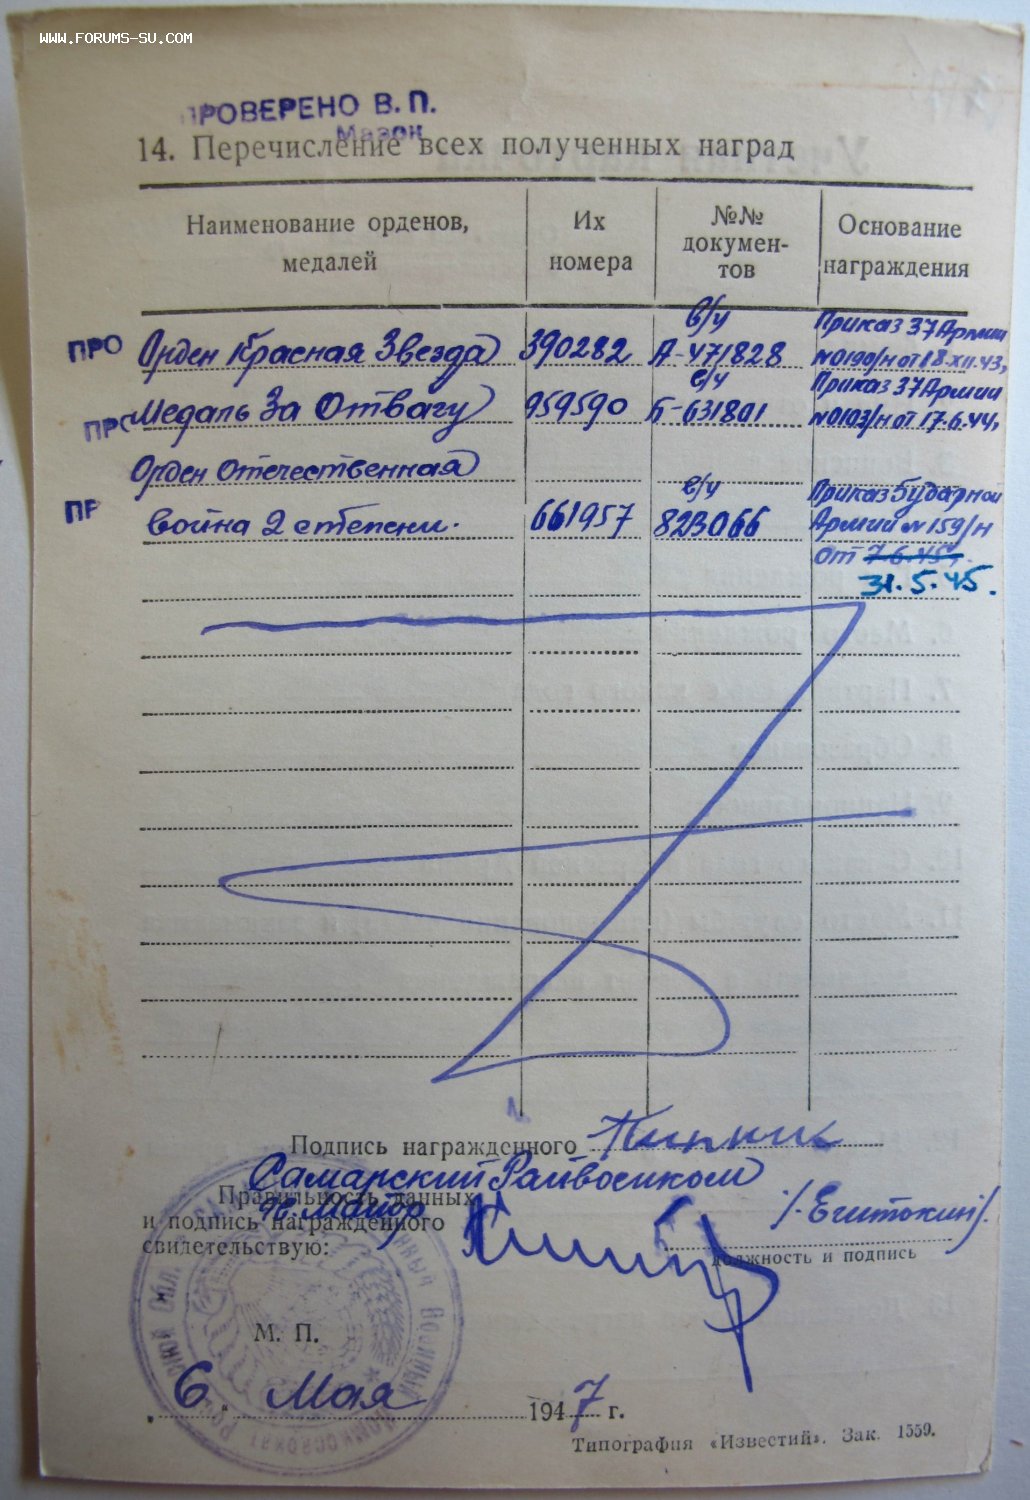 WWW.FORUMS-SU.COM
ПРОВЕРЕНО В. П.
Мазон
14. Перечисление всех полученных наград
Наименование орденов, медалей
Их номера
№№ докумен-тов
Основание награждения
ПРО Орден Красная Звезда 390282 в/ч А-471828 Приказ 37 Армии №0190/н от 18.XII.43,
ПРО Медаль За Отвагу 959590 в/ч Б-631801 Приказ 37 Армии №0103/н от 17.6.44,
Орден Отечественная
ПР война 2 степени. 661957 в/ч 823066 Приказ 5 ударной Армии № 159/н
от 7.6.45г.
31.5.45.
Подпись награжденного
Самарский Райвоенком
Правильность данных
п. Майор
и подпись награжденного
свидетельствую:
должность и подпись
М. П.
6 Мая 1947 г.
Типография «Известий». Зак. 1559.